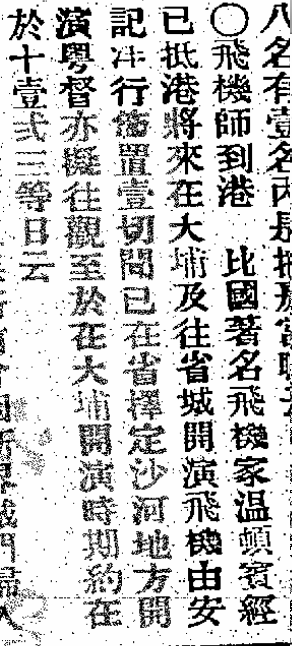 八名有壹名內長
〇飛機師到港　比國著名飛機家溫頓賓經
已抵港將來在大埔及往省城開演飛機由安
記洋行佈置壹切聞已在省擇定沙河地方開
演粵督亦擬往觀至於在大埔開演時期約在
於十壹弍三等日云